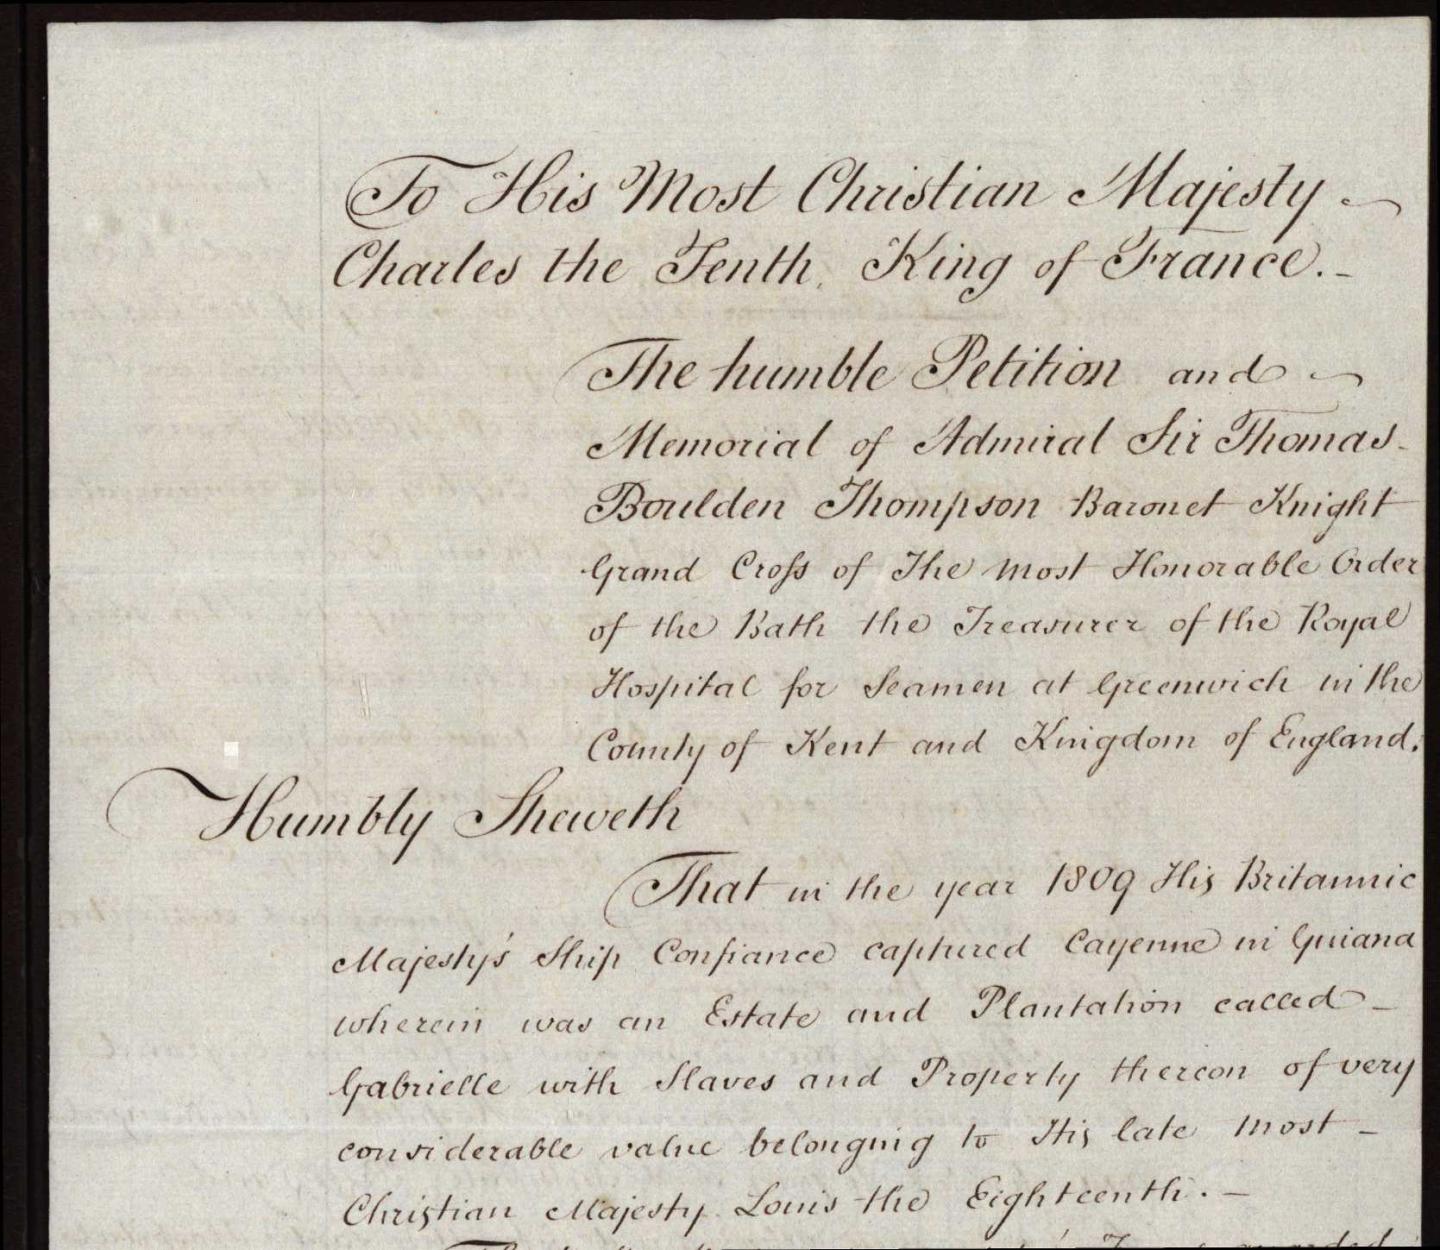 To His Most Christian Majesty
Charles the Tenth, King of France.-
The humble Petition and
Memorial of Admiral Sir Thomas-
Boulden Thompson Baronet Knight
Grand Cross of The most Honorable Order
of the Bath the Treasurer of the Royal
Hospital for Seamen at Greenwich in the
County of Kent and Kingdom of England.
Humbly Sheweth
That in the year 1809 His Britannic
Majesty's Ship Confiance captured Cayenne in Guiana
wherein was an Estate and Plantation called -
Gabrielle with Slaves and Property thereon of very
considerable value belonging to His late Most -
Christian Majesty Louis the Eighteenth. -